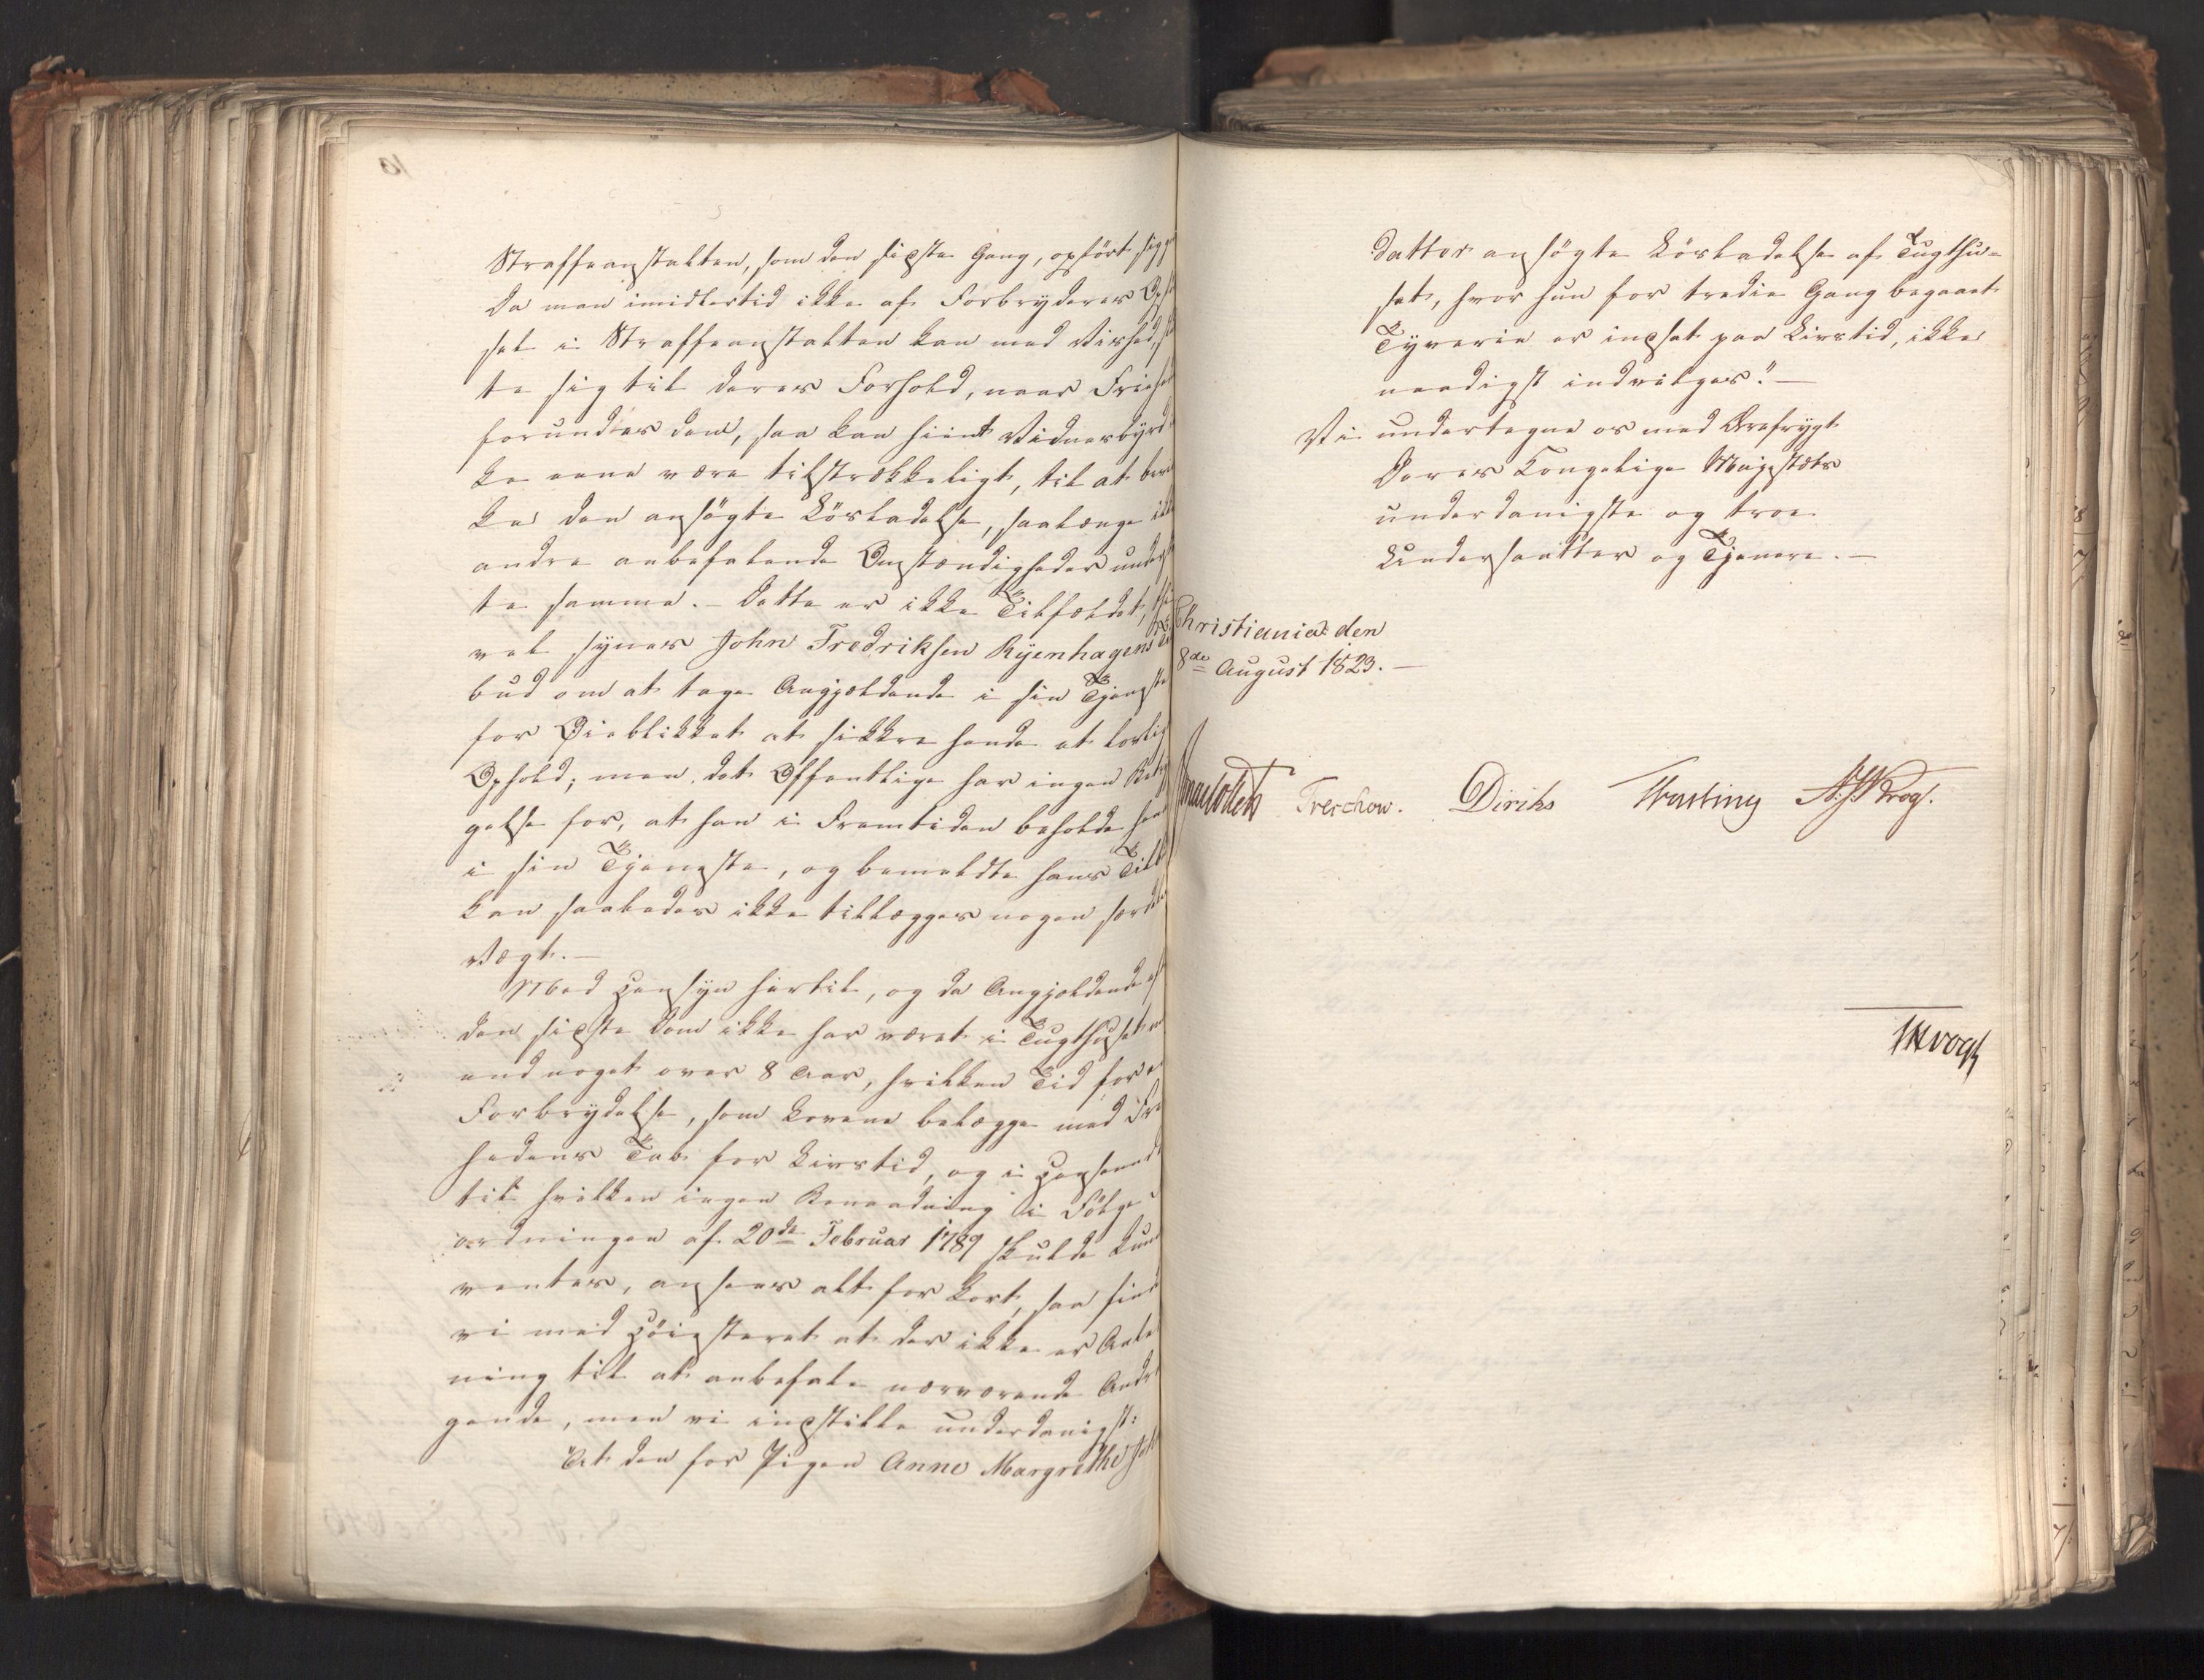 Straffeanstalten, som den sidste Gang, opført sig g
Da man imidlertid ikke af Forbryderes Op
sel i Straffeanstalten kan med Vished,
te sig til deres Forhold, naar Frihed
forundtes dem, saa kan hiint Vidnesbyrd
ke eene være tilstrækkeligt, til at bevi
ke den ansøgte Løsladelse, saalænge ikke
andre anbefalende Omstændigheder under
te samme. – Dette er ikke Tilfældet, thi
vel synes John Fredriksen Ryenhagens Til
bud om at tage Angjældende i sin Tjeneste
for Øieblikket at sikkre hende et lovligt
Ophold; men det Offentlige har ingen Bety
gelse for, at han i Fremtiden beholder hende
i sin Tjeneste, og bemeldte hans Tilb
kan saaledes ikke tillægges nogen særdeles
Vægt. –
Med Hensyn hertil, og da Angjeldende ef
den sidste Dom ikke har været i Tugthuset m
end noget over 8 Aar, hvilken Tid for e
Forbrydelse, som Lovene belægge med Fri
hedens Tab for Livstid, og i Henseende
til hvilken ingen Benaadning i Følge
ordningen af 20de Februar 1789 skulde kun
ventes, ansees alt for kort, saa finde
vi med Høiesteret at der ikke er Anled
ning til at anbefale nærværende Andra
gende, men vi indstille underdanigst:
At den for Pigen Anne Margrethe
datter ansøgte Løsladelse af Tugthu=
set, hvor hun for tredie Gang begaaet
Tyverie er indsat paa Livstid, ikke
naadigst indvilges." –
Vi undertegne os med Ærefrygt
Deres Kongelige Majestæts
underdanigste og troe
Undersaatter og Tjenere. –
Christiania den
8de August 1823. –
Treschow. Diriks Fasting Krog.